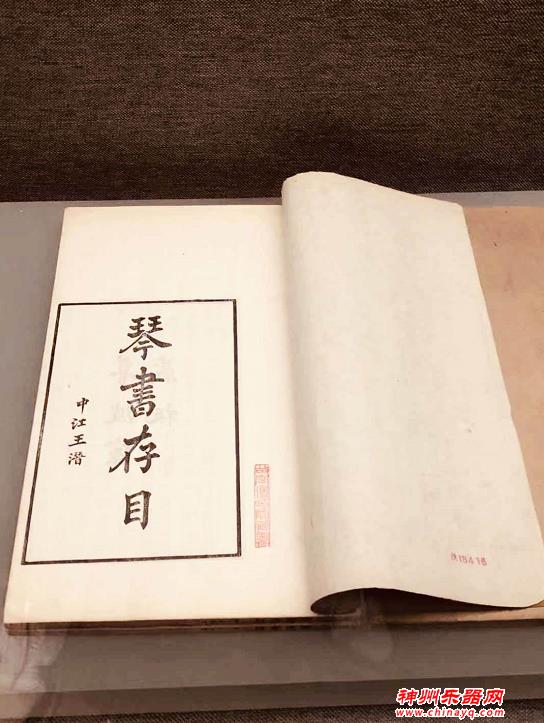 琴書存目
中江王潛
15416
神州乐器网
www.chinayq.com